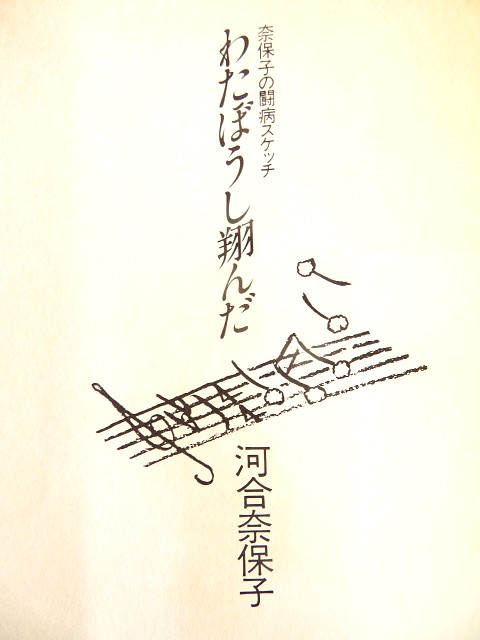 奈保子の闘病スケッチ
わたぼうし翔んだ
河合奈保子